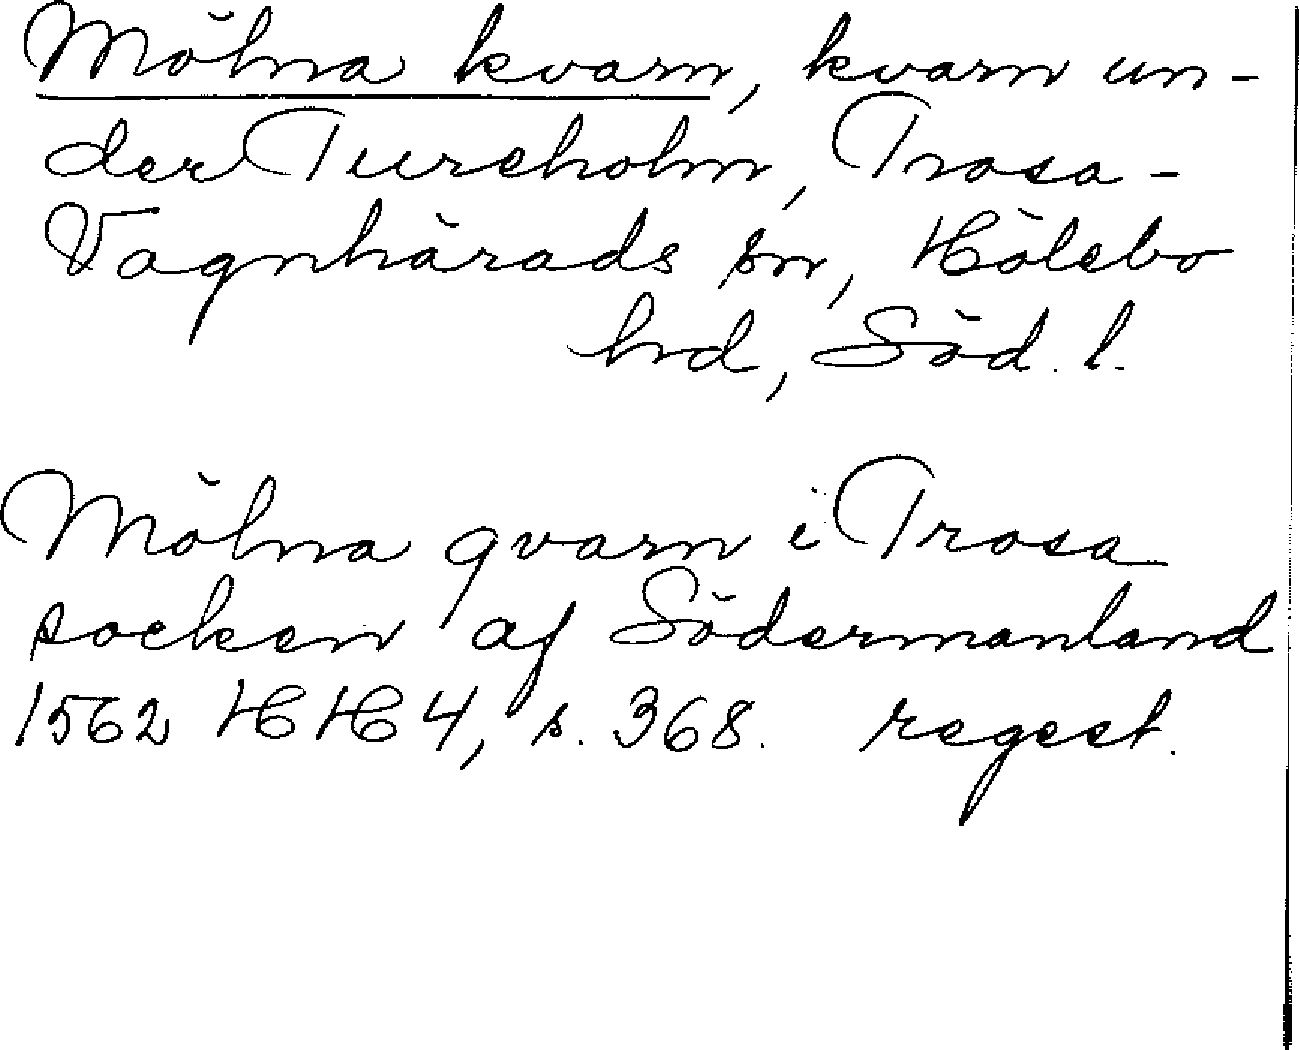 Mölna kvarn, kvarn un-
der Tureholm, Trosa-
Vagnhärads sn, Hölebo
hd, Söd. l.
Mölna qvarn i Trosa
socken af Södermanland
1562 HH 4, s. 368. regest.